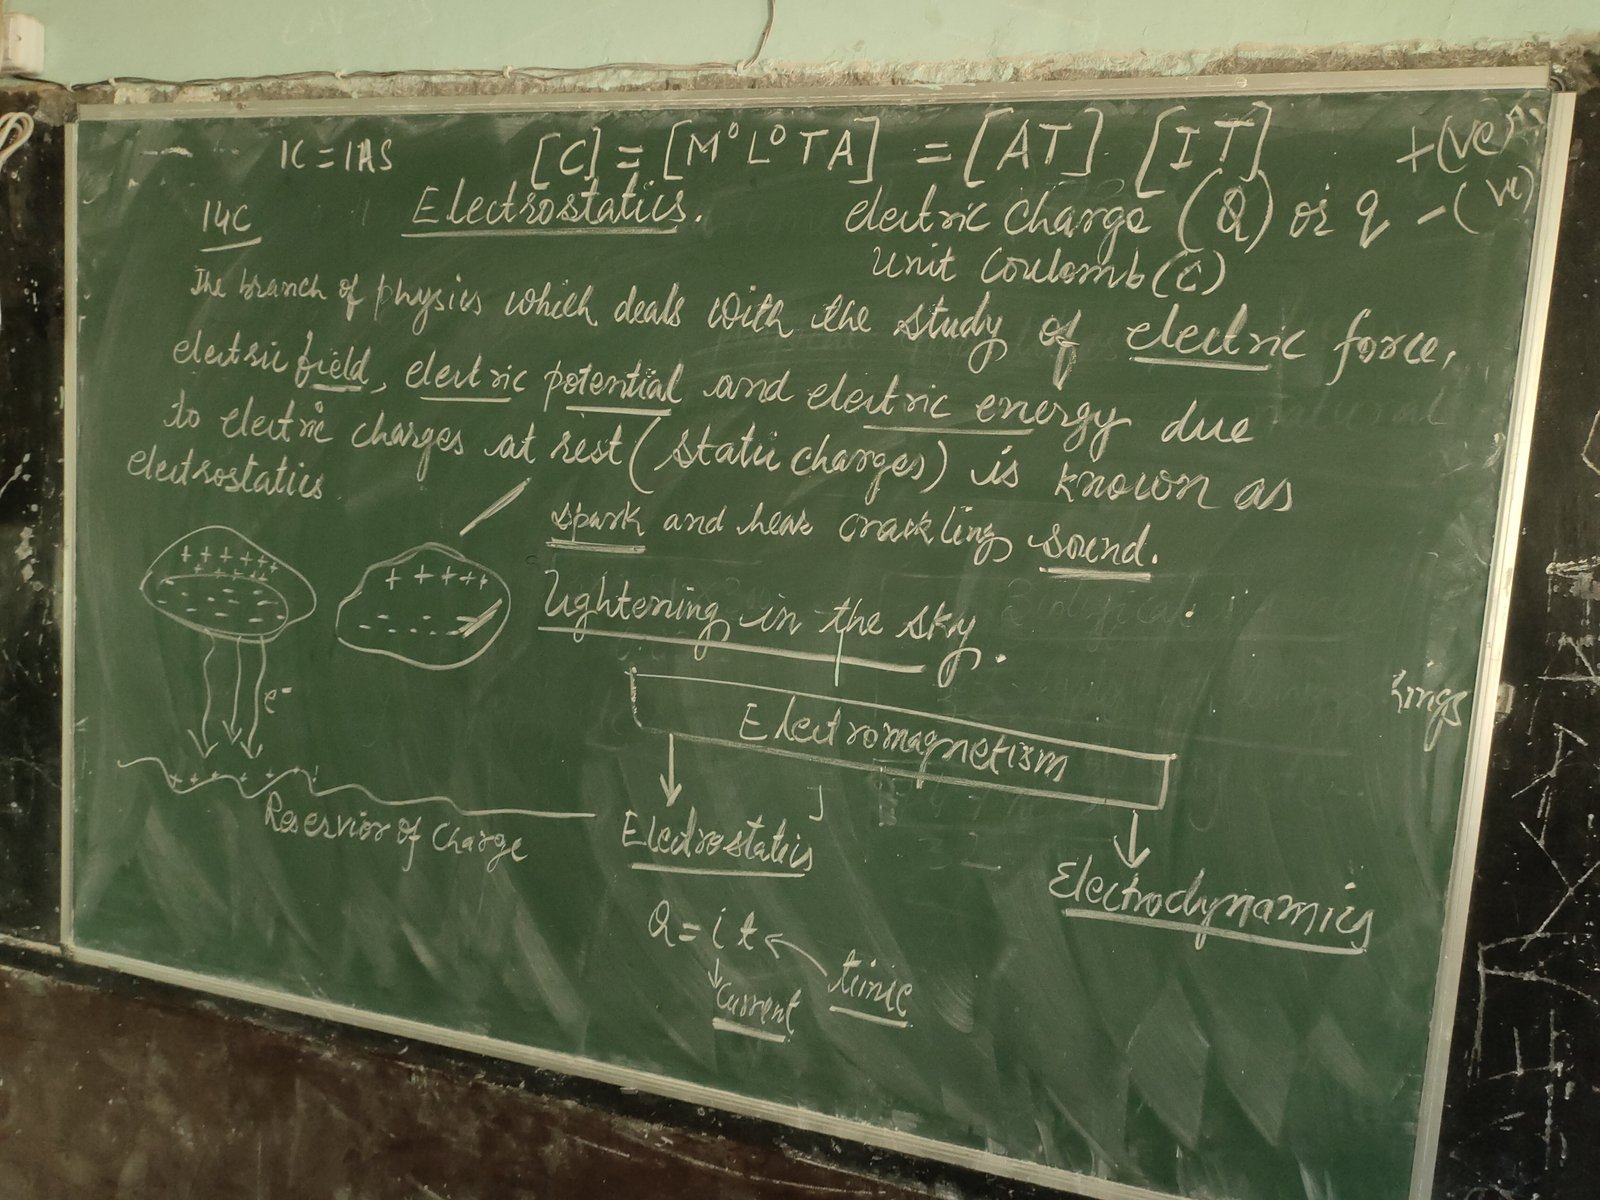 1C = 1AS [C] = [M⁰L⁰TA] = [AT] [IT] +(ve)
14C Electrostatics. electric charge (Q) or q -(ve)
Unit Coulomb (C)
The branch of physics which deals with the study of electric force,
electric field, electric potential and electric energy due
to electric charges at rest (static charges) is known as
electrostatics
spark and hear crackling sound.
+ + + + + +
- - - - - -
+ + + + +
- - - - -
Lightening in the sky.
e⁻
Electromagnetism
Reservior of Charge
Electrostatics
Electrodynamics
Q = i t
Current
time